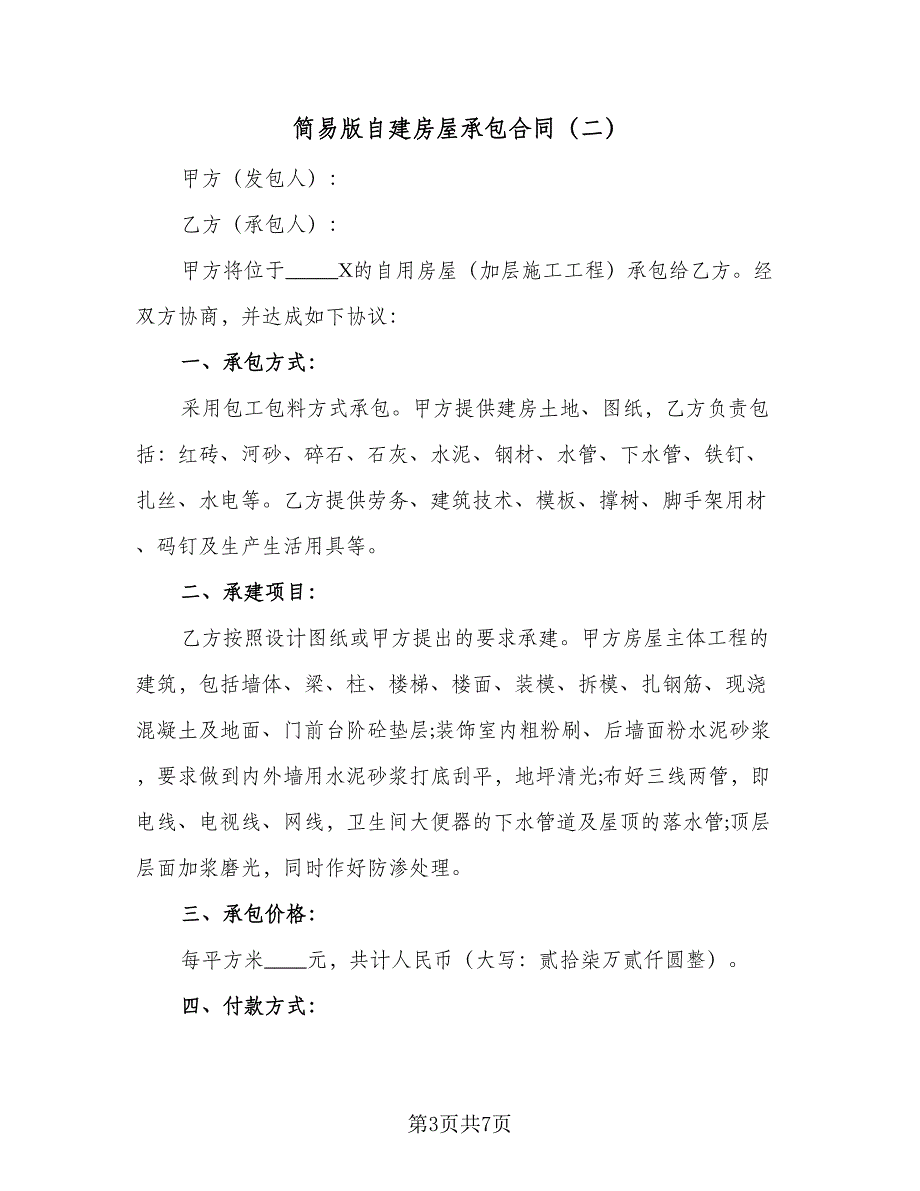 简易版自建房屋承包合同（二）
甲方（发包人）：
乙方（承包人）：
甲方将位于_____X的自用房屋（加层施工工程）承包给乙方。经
双方协商，并达成如下协议：
一、承包方式：
采用包工包料方式承包。甲方提供建房土地、图纸，乙方负责包
括：红砖、河砂、碎石、石灰、水泥、钢材、水管、下水管、铁钉、
扎丝、水电等。乙方提供劳务、建筑技术、模板、撑树、脚手架用材
、码钉及生产生活用具等。
二、承建项目：
乙方按照设计图纸或甲方提出的要求承建。甲方房屋主体工程的
建筑，包括墙体、梁、柱、楼梯、楼面、装模、拆模、扎钢筋、现浇
混凝土及地面、门前台阶砼垫层;装饰室内粗粉刷、后墙面粉水泥砂浆
，要求做到内外墙用水泥砂浆打底刮平，地坪清光;布好三线两管，即
电线、电视线、网线，卫生间大便器的下水管道及屋顶的落水管;顶层
层面加浆磨光，同时作好防渗处理。
三、承包价格：
每平方米____元，共计人民币（大写：贰拾柒万贰仟圆整）。
四、付款方式：
第3页共7页